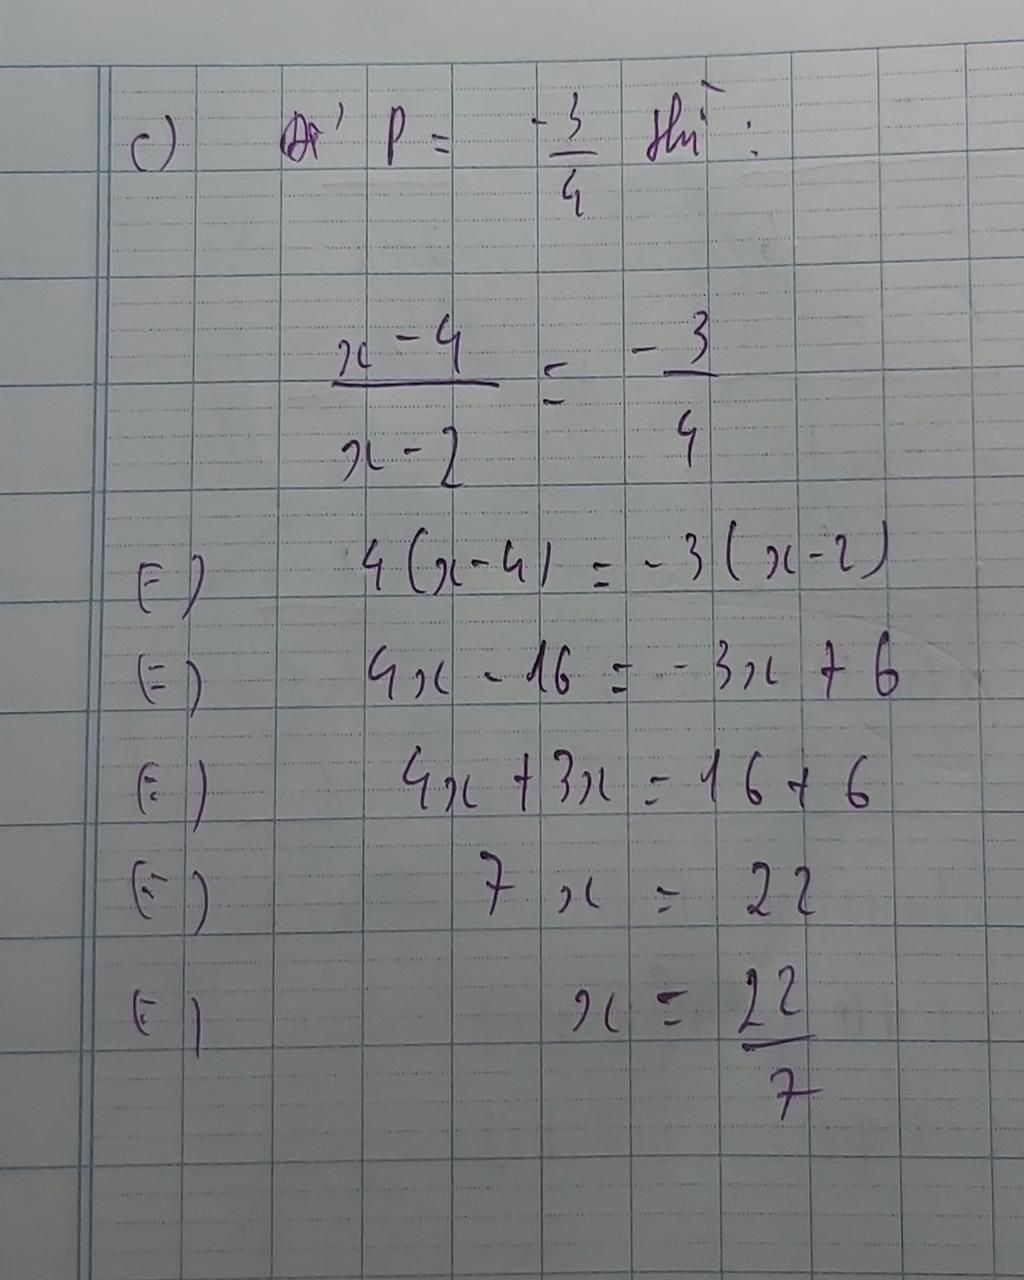 c) Để P = -3/4 thì :
x - 4 / x - 2 = - 3/4
(=) 4(x-4) = -3(x-2)
(=) 4x - 16 = - 3x + 6
(=) 4x + 3x = 16 + 6
(=) 7x = 22
(=) x = 22/7